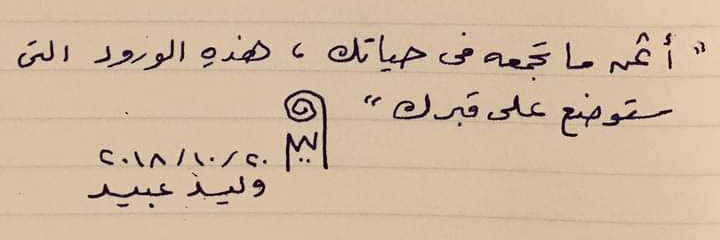 "أثمن ما تجمعه في حياتك ، هذهِ الورود التي
ستوضع على قبرك"
٢٠١٨/١٠/٢٠
وليد عبيد